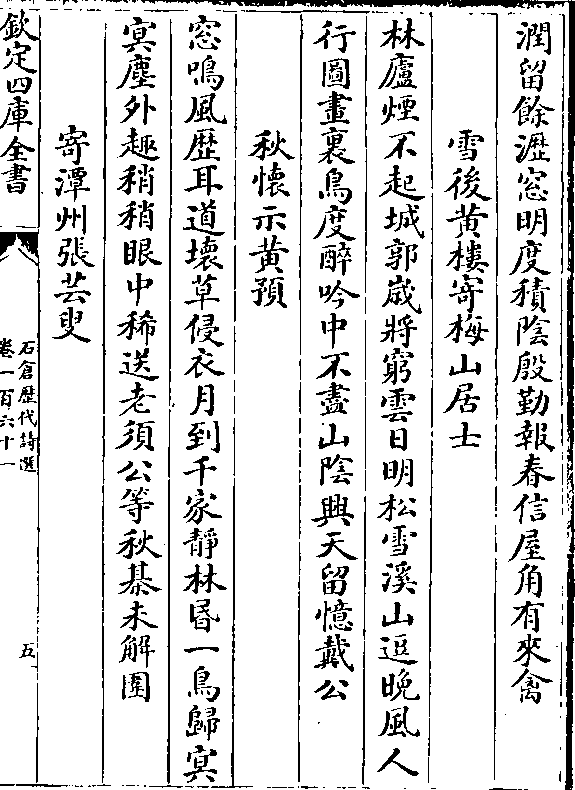 潤留餘瀝窓明度積陰殷勤報春信屋角有來禽
雪後黄樓寄梅山居士
林廬煙不起城郭嵗將窮雲日明松雪溪山逗晚風人
行圖畫裏鳥度醉吟中不盡山陰興天留憶戴公
秋懐示黄預
窓鳴風歴耳道壊草侵衣月到千家靜林昏一鳥歸冥
冥塵外趣稍稍眼中稀送老須公等秋棊未解圍
寄潭州張芸叟
欽定四庫全書
石倉歷代詩選
卷一百六十一
五